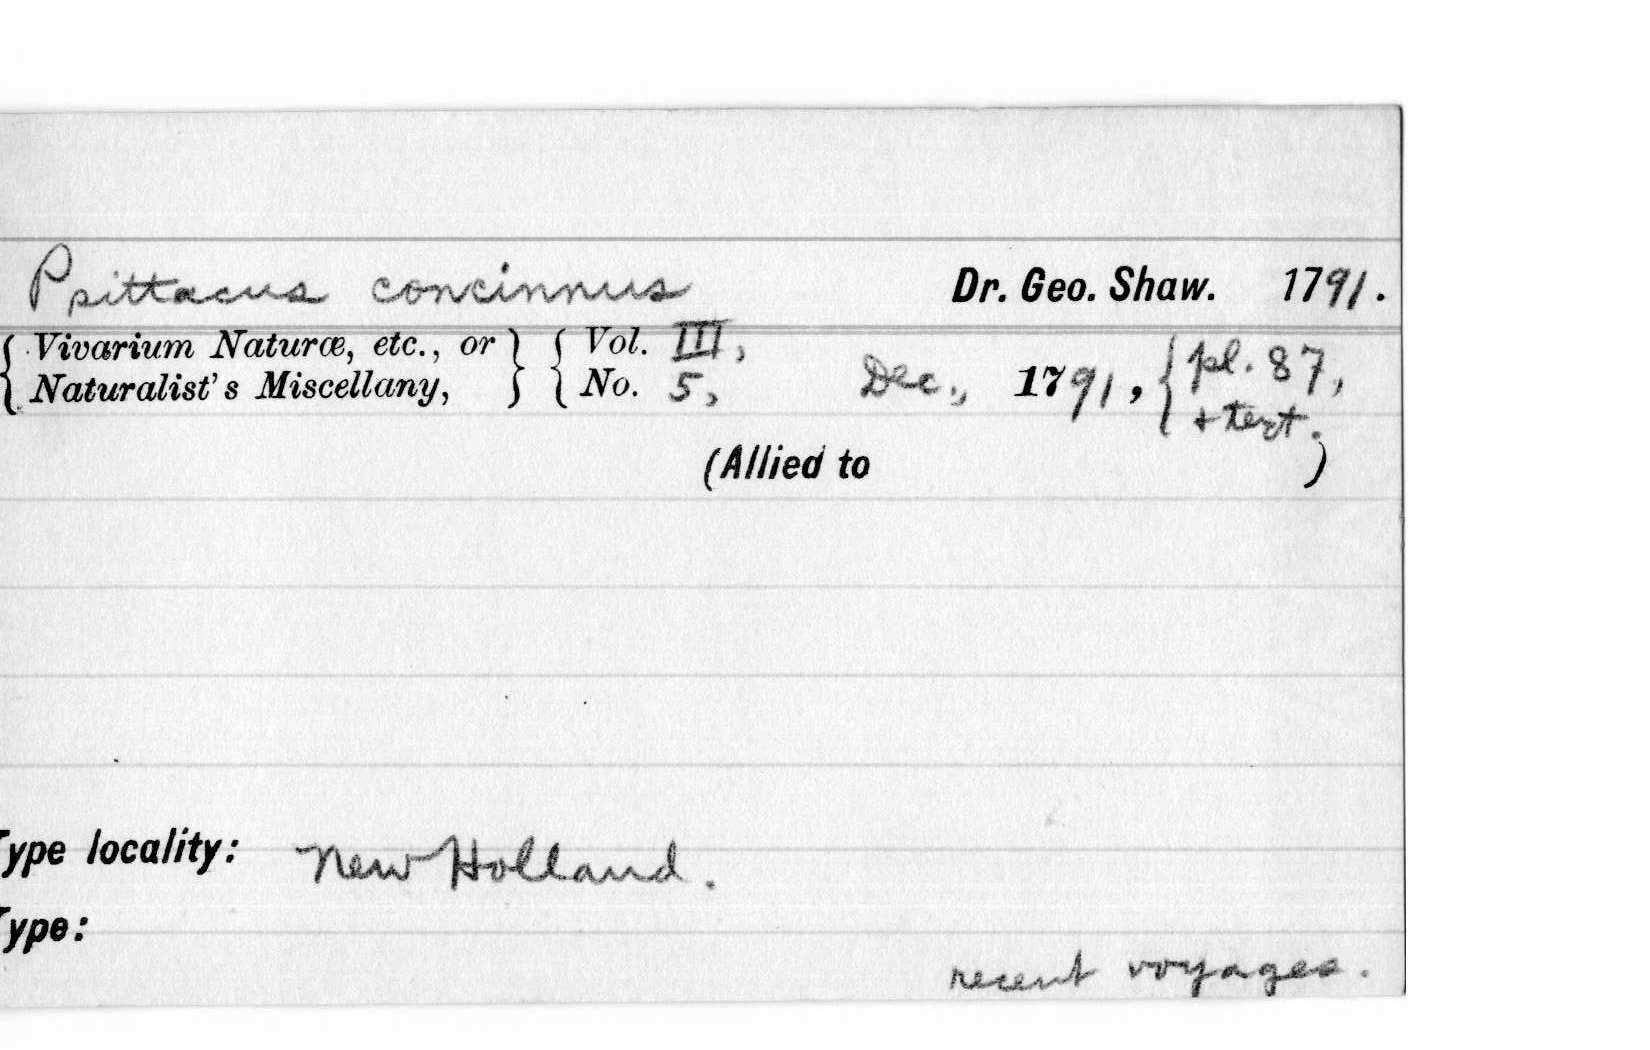 Psittacus concinnus Dr. Geo. Shaw. 1791.
{ Vivarium Naturæ, etc., or } { Vol. III,
Naturalist's Miscellany, No. 5, Dec., 1791, { pl. 87,
+ text.
(Allied to )
Type locality: New Holland.
Type:
recent voyages.